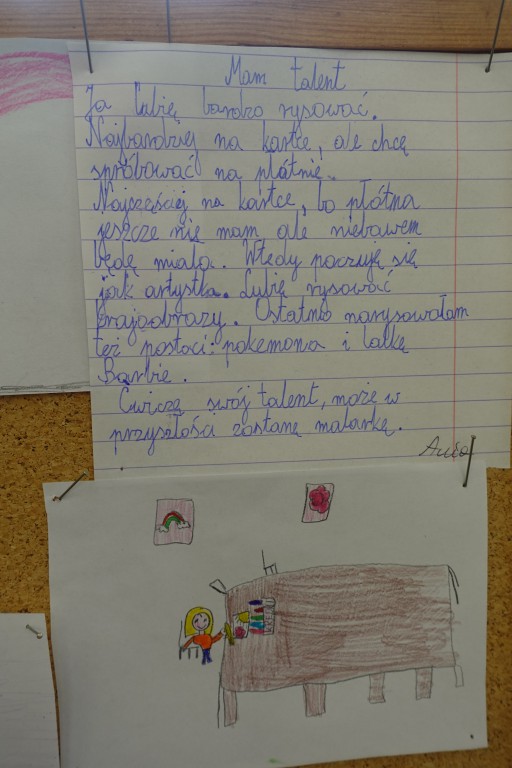 Mam talent
Ja lubię bardzo rysować.
Najbardziej na kartce, ale chcę
spróbować na płótnie.
Najczęściej na kartce, bo płótna
jeszcze nie mam, ale niebawem
będę miała. Wtedy poczuję się
jak artystka. Lubię rysować
krajoobrazy. Ostatnio narysowałam
też postaci: pokemona i lalkę
Barbie.
Ćwiczę swój talent, może w
przyszłości zostanę malarką.